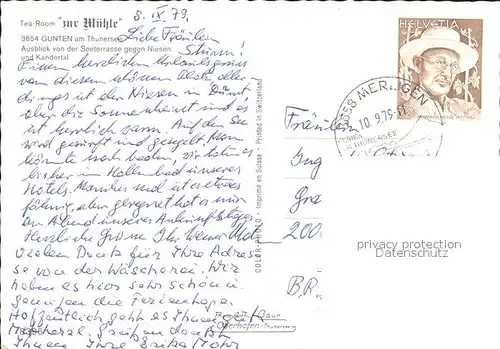 Tea-Room "zur Mühle"
3654 GUNTEN am Thunersee
Ausblick von der Seeterrasse gegen Niesen
und Kandertal
8. IX 79.
Liebe Fräulein
Sturm!
Einen herzlichen Urlaubsgruss
von diesem schönen Platz, aller
dings ist der Niesen in Dunst
aber die Sonne scheint und es
ist herrlich warm. Auf dem See
wird gesurft und gesegelt. Man
könnte noch baden, wir taten es
lieber im Hallenbad unseres
Hotels. Manchmal ist es etwas
aber geregnet hat es nur
am Abend unseres Ankunftstages
Herzliche Grüsse Ihr Werner Mohr
Vielen Dank für Ihre Adres
se von der Wäscherei. Wir
haben es hier sehr schön u.
geniessen die Ferientage.
Hoffentlich geht es Ihnen
Grüßen
Ihre Erika Mohr
COLOR-PHOTO • Imprimé en Suisse - Printed in Switzerland
Oberhofen-Thunersee
HELVETIA
HERMANN HESSE
3658 MERLIGEN
10.9.79-11
THUNERSEE
Fräulein
Ing
Gra
200
B.R.
privacy protection
Datenschutz